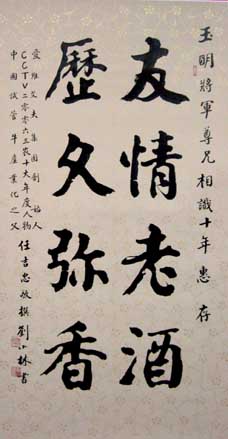 玉明將軍尊兄相識十年惠存
友情老酒
歷久弥香
愛維艾夫集團創始人
CCTV二零零六三農十大年度人物
中國試管牛産業化之父
任吉忠敬撰 劉小林書